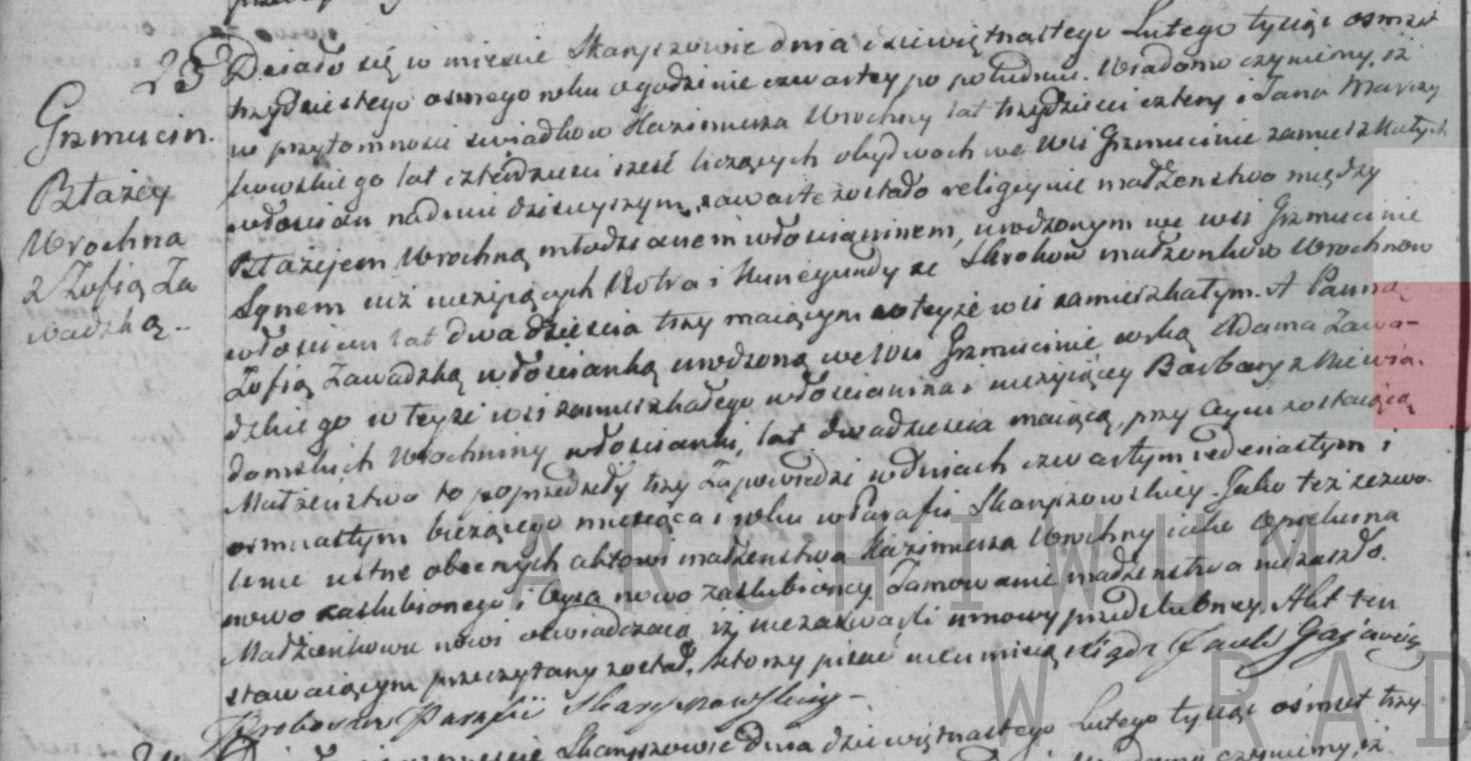 23
Grzmucin.
Błażey
Wrochna
z Zofią Za
wadzką.
Działo się w mieście Skaryszowie dnia dziewiętnastego Lutego tysiąc ośmset
trzydziestego osmego roku o godzinie czwartey po południu. Wiadomo czyniemy, iż
w przytomności swiadków Kazimierza Wrochny lat trzydzieści cztery i Jana Marczy
kowskiego lat czterdzieści sześć liczących obydwoch we wsi Grzmucinie zamieszkałych
włościan na dniu dzisieyszym, zawarte zostało religiynie małżenstwo między
Błażejem Wrochną młodzianem włościaninem, urodzonym we wsi Grzmucinie
Synem już nieżyjących Piotra i Kunegundy ze Skroków małżonków Wrochnow
włościan lat dwadzieścia trzy maiącym w teyże wsi zamieszkałym. A Panną
Zofią Zawadzką włościanką urodzoną we wsi Grzmucinie córką Adama Zawa-
dzkiego w teyże wsi zamieszkałego włościanina i nieżyiącey Barbary z Niewia-
domskich włościanki, lat dwadzieścia maiącą, przy Oycu zostaiącą
Małżeństwo to poprzedziły trzy Zapowiedzi w dniach czwartym iedenastym i
osmnastym bieżącego miesiąca i roku w Parafii Skaryszowskiey. Jako też zezwo-
lenie ustne obecnych aktowi małżenstwa Kazimierza Wrochny iako Opiekuna
nowo zaslubionego i Oyca nowo zaslubioney. Tamowanie małżenstwa nie zaszło.
Małżonkowie nowi oswiadczaią iż niezawarli umowy przedslubney. Akt ten
stawaiącym przeczytany został, którzy pisać nieumieią. Xiądz Jacek Gajewicz
Proboszcz Parafii Skaryszowskiey
Skaryszowie dnia dziewiętnastego Lutego tysiąc ośmset trzy-
czyniemy, iż
ARCHIWUM
W RAD